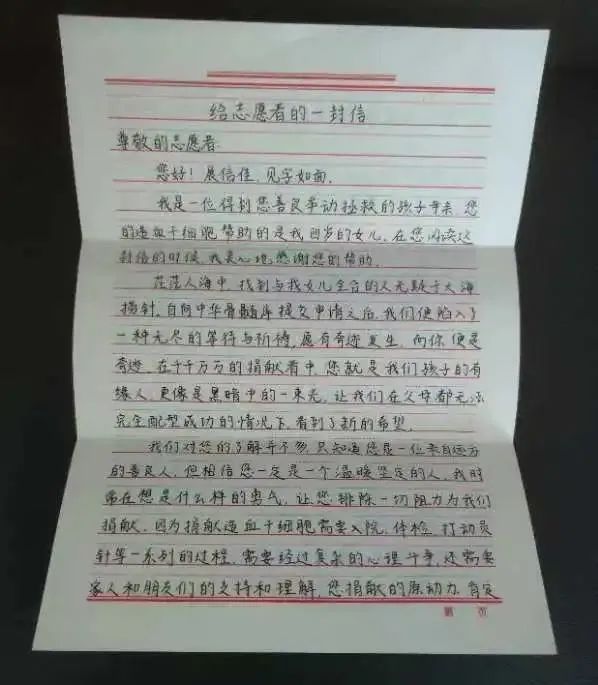 给志愿者的一封信
尊敬的志愿者
您好！展信佳，见字如面。
我是一位得到您善良举动拯救的孩子母亲，您
的造血干细胞帮助的是我四岁的女儿。在您阅读这
封信的时候，我衷心地感谢您的帮助。
茫茫人海中，找到与我女儿全合的人无疑于大海
捞针，自向中华骨髓库提交申请之后，我们便陷入了
一种无尽的等待与祈祷，愿有奇迹发生，而你，便是
奇迹。在千千万万的捐献者中，您就是我们孩子的有
缘人，更像是黑暗中的一束光，让我们在父母都无法
完全配型成功的情况下，看到了新的希望。
我们对您的了解并不多，只知道您是一位来自远方
的善良人，但相信您一定是一个温暖坚定的人，我时
常在想是什么样的勇气，让您排除一切阻力为我们
捐献，因为捐献造血干细胞需要入院、体检、打动员
针等一系列的过程，需要经过复杂的心理斗争，还需要
家人和朋友们的支持和理解，您捐献的原动力，肯定
第 页